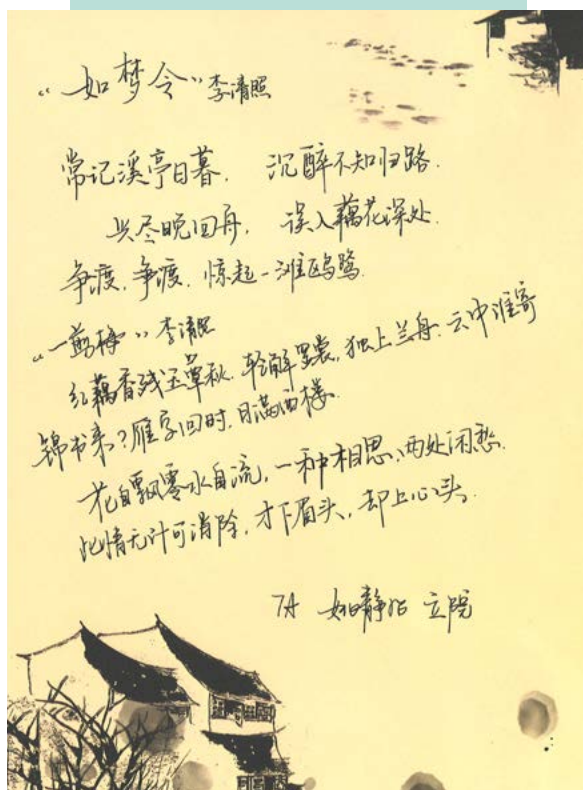 “如梦令” 李清照
常记溪亭日暮. 沉醉不知归路.
兴尽晚回舟, 误入藕花深处.
争渡, 争渡, 惊起一滩鸥鹭.
“一剪梅” 李清照
红藕香残玉簟秋. 轻解罗裳, 独上兰舟. 云中谁寄
锦书来? 雁字回时, 月满西楼.
花自飘零水自流, 一种相思, 两处闲愁.
此情无计可消除, 才下眉头, 却上心头.
7A